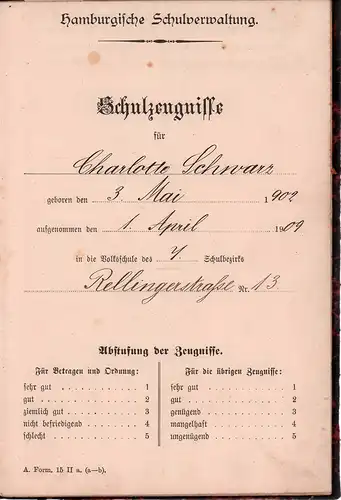 Hamburgische Schulverwaltung.
Schulzeugnisse
für
Charlotte Schwarz
geboren den 3. Mai 1902
aufgenommen den 1. April 1909
in die Volksschule des 7. Schulbezirks
Rellingerstraße Nr. 13
Abstufung der Zeugnisse.
Für Betragen und Ordnung: Für die übrigen Zeugnisse:
sehr gut . . . . . . . . . . 1 sehr gut . . . . . . . . . . 1
gut . . . . . . . . . . 2 gut . . . . . . . . . . 2
ziemlich gut . . . . . . . . 3 genügend . . . . . . . . 3
nicht befriedigend . . . . 4 mangelhaft . . . . . . . . 4
schlecht . . . . . . . . . . 5 ungenügend . . . . . . . 5
A. Form. 15 II a. (a—b).